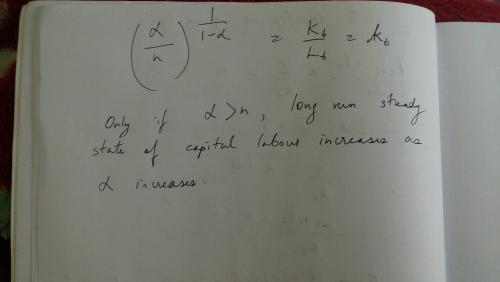 (α/n)^(1/(1-α)) = K_t/L_t = k_t
Only if α>n, long run steady
state of capital labour increases as
α increases.